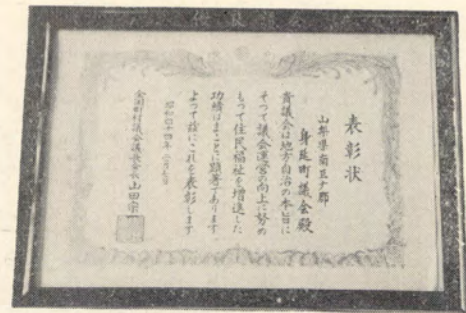 表彰状
山梨県南巨摩郡
身延町議会殿
貴議会は地方自治の本旨に
そつて議会運営の向上に努め
もつて住民福祉を増進した
功績はまことに顕著であります
よつて茲にこれを表彰します
昭和四十四年二月七日
全国町村議会議長会会長山田宗一